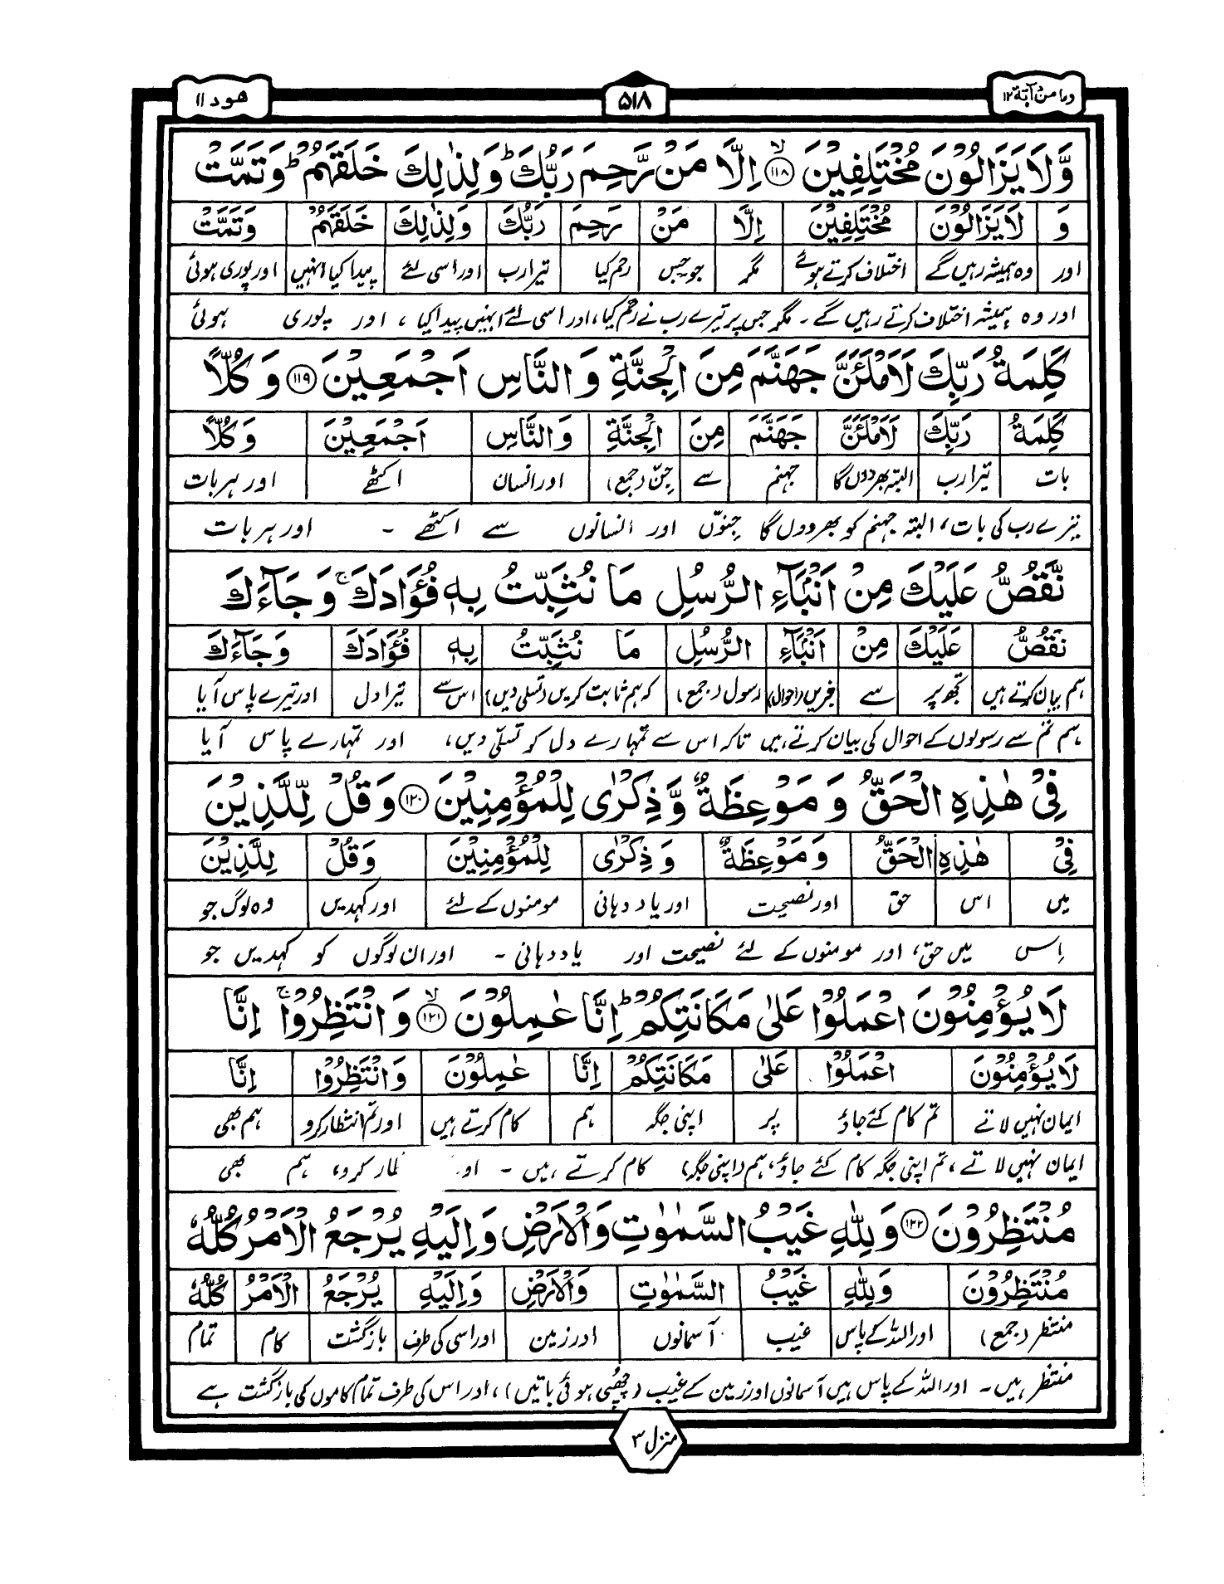 ومامن دآبة ١٢
٥١٨
هود ١١
وَّلَا يَزَالُوْنَ مُخْتَلِفِيْنَ ۙ﴿١١٨﴾ اِلَّا مَنْ رَّحِمَ رَبُّكَ ؕ وَلِذٰلِكَ خَلَقَهُمْ ؕ وَتَمَّتْ
وَ لَا يَزَالُوْنَ مُخْتَلِفِيْنَ اِلَّا مَنْ رَّحِمَ رَبُّكَ وَلِذٰلِكَ خَلَقَهُمْ وَتَمَّتْ
اور وہ ہمیشہ رہیں گے اختلاف کرتے ہوئے مگر جو جس رحم کیا تیرا رب اور اسی لئے پیدا کیا انہیں اور پوری ہوئی
اور وہ ہمیشہ اختلاف کرتے رہیں گے ۔ مگر جس پر تیرے رب نے رحم کیا، اور اسی لئے انہیں پیدا کیا ، اور پوری ہوئی
كَلِمَةُ رَبِّكَ لَاَمْلَئَنَّ جَهَنَّمَ مِنَ الْجِنَّةِ وَ النَّاسِ اَجْمَعِيْنَ ﴿١١٩﴾ وَ كُلًّا
كَلِمَةُ رَبِّكَ لَاَمْلَئَنَّ جَهَنَّمَ مِنَ الْجِنَّةِ وَالنَّاسِ اَجْمَعِيْنَ وَكُلًّا
بات تیرا رب البتہ بھردوں گا جہنم سے جِنّ (جمع) اور انسان اکٹھے اور ہر بات
تیرے رب کی بات، البتہ جہنم کو بھر دوں گا جِنوّں اور انسانوں سے اکٹھے ۔ اور ہر بات
نَّقُصُّ عَلَيْكَ مِنْ اَنْۢبَآءِ الرُّسُلِ مَا نُثَبِّتُ بِهٖ فُؤَادَكَ ۚ وَ جَآءَكَ
نَقُصُّ عَلَيْكَ مِنْ اَنْۢبَآءِ الرُّسُلِ مَا نُثَبِّتُ بِهٖ فُؤَادَكَ وَجَآءَكَ
ہم بیان کرتے ہیں تجھ پر سے خبریں (احوال) رسول (جمع) کہ ہم ثابت کریں (تسلی دیں) اس سے تیرا دل اور تیرے پاس آیا
ہم تم سے رسولوں کے احوال کی بیان کرتے ہیں تاکہ اس سے تمہارے دل کو تسلّی دیں، اور تمہارے پاس آیا
فِيْ هٰذِهِ الْحَقُّ وَ مَوْعِظَةٌ وَّ ذِكْرٰى لِلْمُؤْمِنِيْنَ ﴿١٢٠﴾ وَ قُلْ لِّلَّذِيْنَ
فِيْ هٰذِهِ الْحَقُّ وَ مَوْعِظَةٌ وَ ذِكْرٰى لِلْمُؤْمِنِيْنَ وَقُلْ لِلَّذِيْنَ
میں اس حق اور نصیحت اور یاد دہانی مومنوں کے لئے اور کہدیں وہ لوگ جو
اِس میں حق، اور مومنوں کے لئے نصیحت اور یاد دہانی ۔ اور ان لوگوں کو کہدیں جو
لَا يُؤْمِنُوْنَ اعْمَلُوْا عَلٰى مَكَانَتِكُمْ ؕ اِنَّا عٰمِلُوْنَ ۙ﴿١٢١﴾ وَ انْتَظِرُوْا ۚ اِنَّا
لَا يُؤْمِنُوْنَ اعْمَلُوْا عَلٰى مَكَانَتِكُمْ اِنَّا عٰمِلُوْنَ وَانْتَظِرُوْا اِنَّا
ایمان نہیں لاتے تم کام کئے جاؤ پر اپنی جگہ ہم کام کرتے ہیں اور تم انتظار کرو ہم بھی
ایمان نہیں لاتے ، تم اپنی جگہ کام کئے جاؤ، ہم (اپنی جگہ) کام کرتے ہیں ۔ کرو، ہم بھی
مُنْتَظِرُوْنَ ﴿١٢٢﴾ وَ لِلّٰهِ غَيْبُ السَّمٰوٰتِ وَ الْاَرْضِ وَ اِلَيْهِ يُرْجَعُ الْاَمْرُ كُلُّهٗ
مُنْتَظِرُوْنَ وَلِلّٰهِ غَيْبُ السَّمٰوٰتِ وَالْاَرْضِ وَاِلَيْهِ يُرْجَعُ الْاَمْرُ كُلُّهٗ
منتظر (جمع) اور اللہ کے پاس غیب آسمانوں اور زمین اور اسی کی طرف بازگشت کام تمام
منتظر ہیں۔ اور اللہ کے پاس ہیں آسمانوں اور زمین کے غیب (چھپی ہوئی باتیں) ، اور اس کی طرف تمام کاموں کی بازگشت ہے
منزل ٣